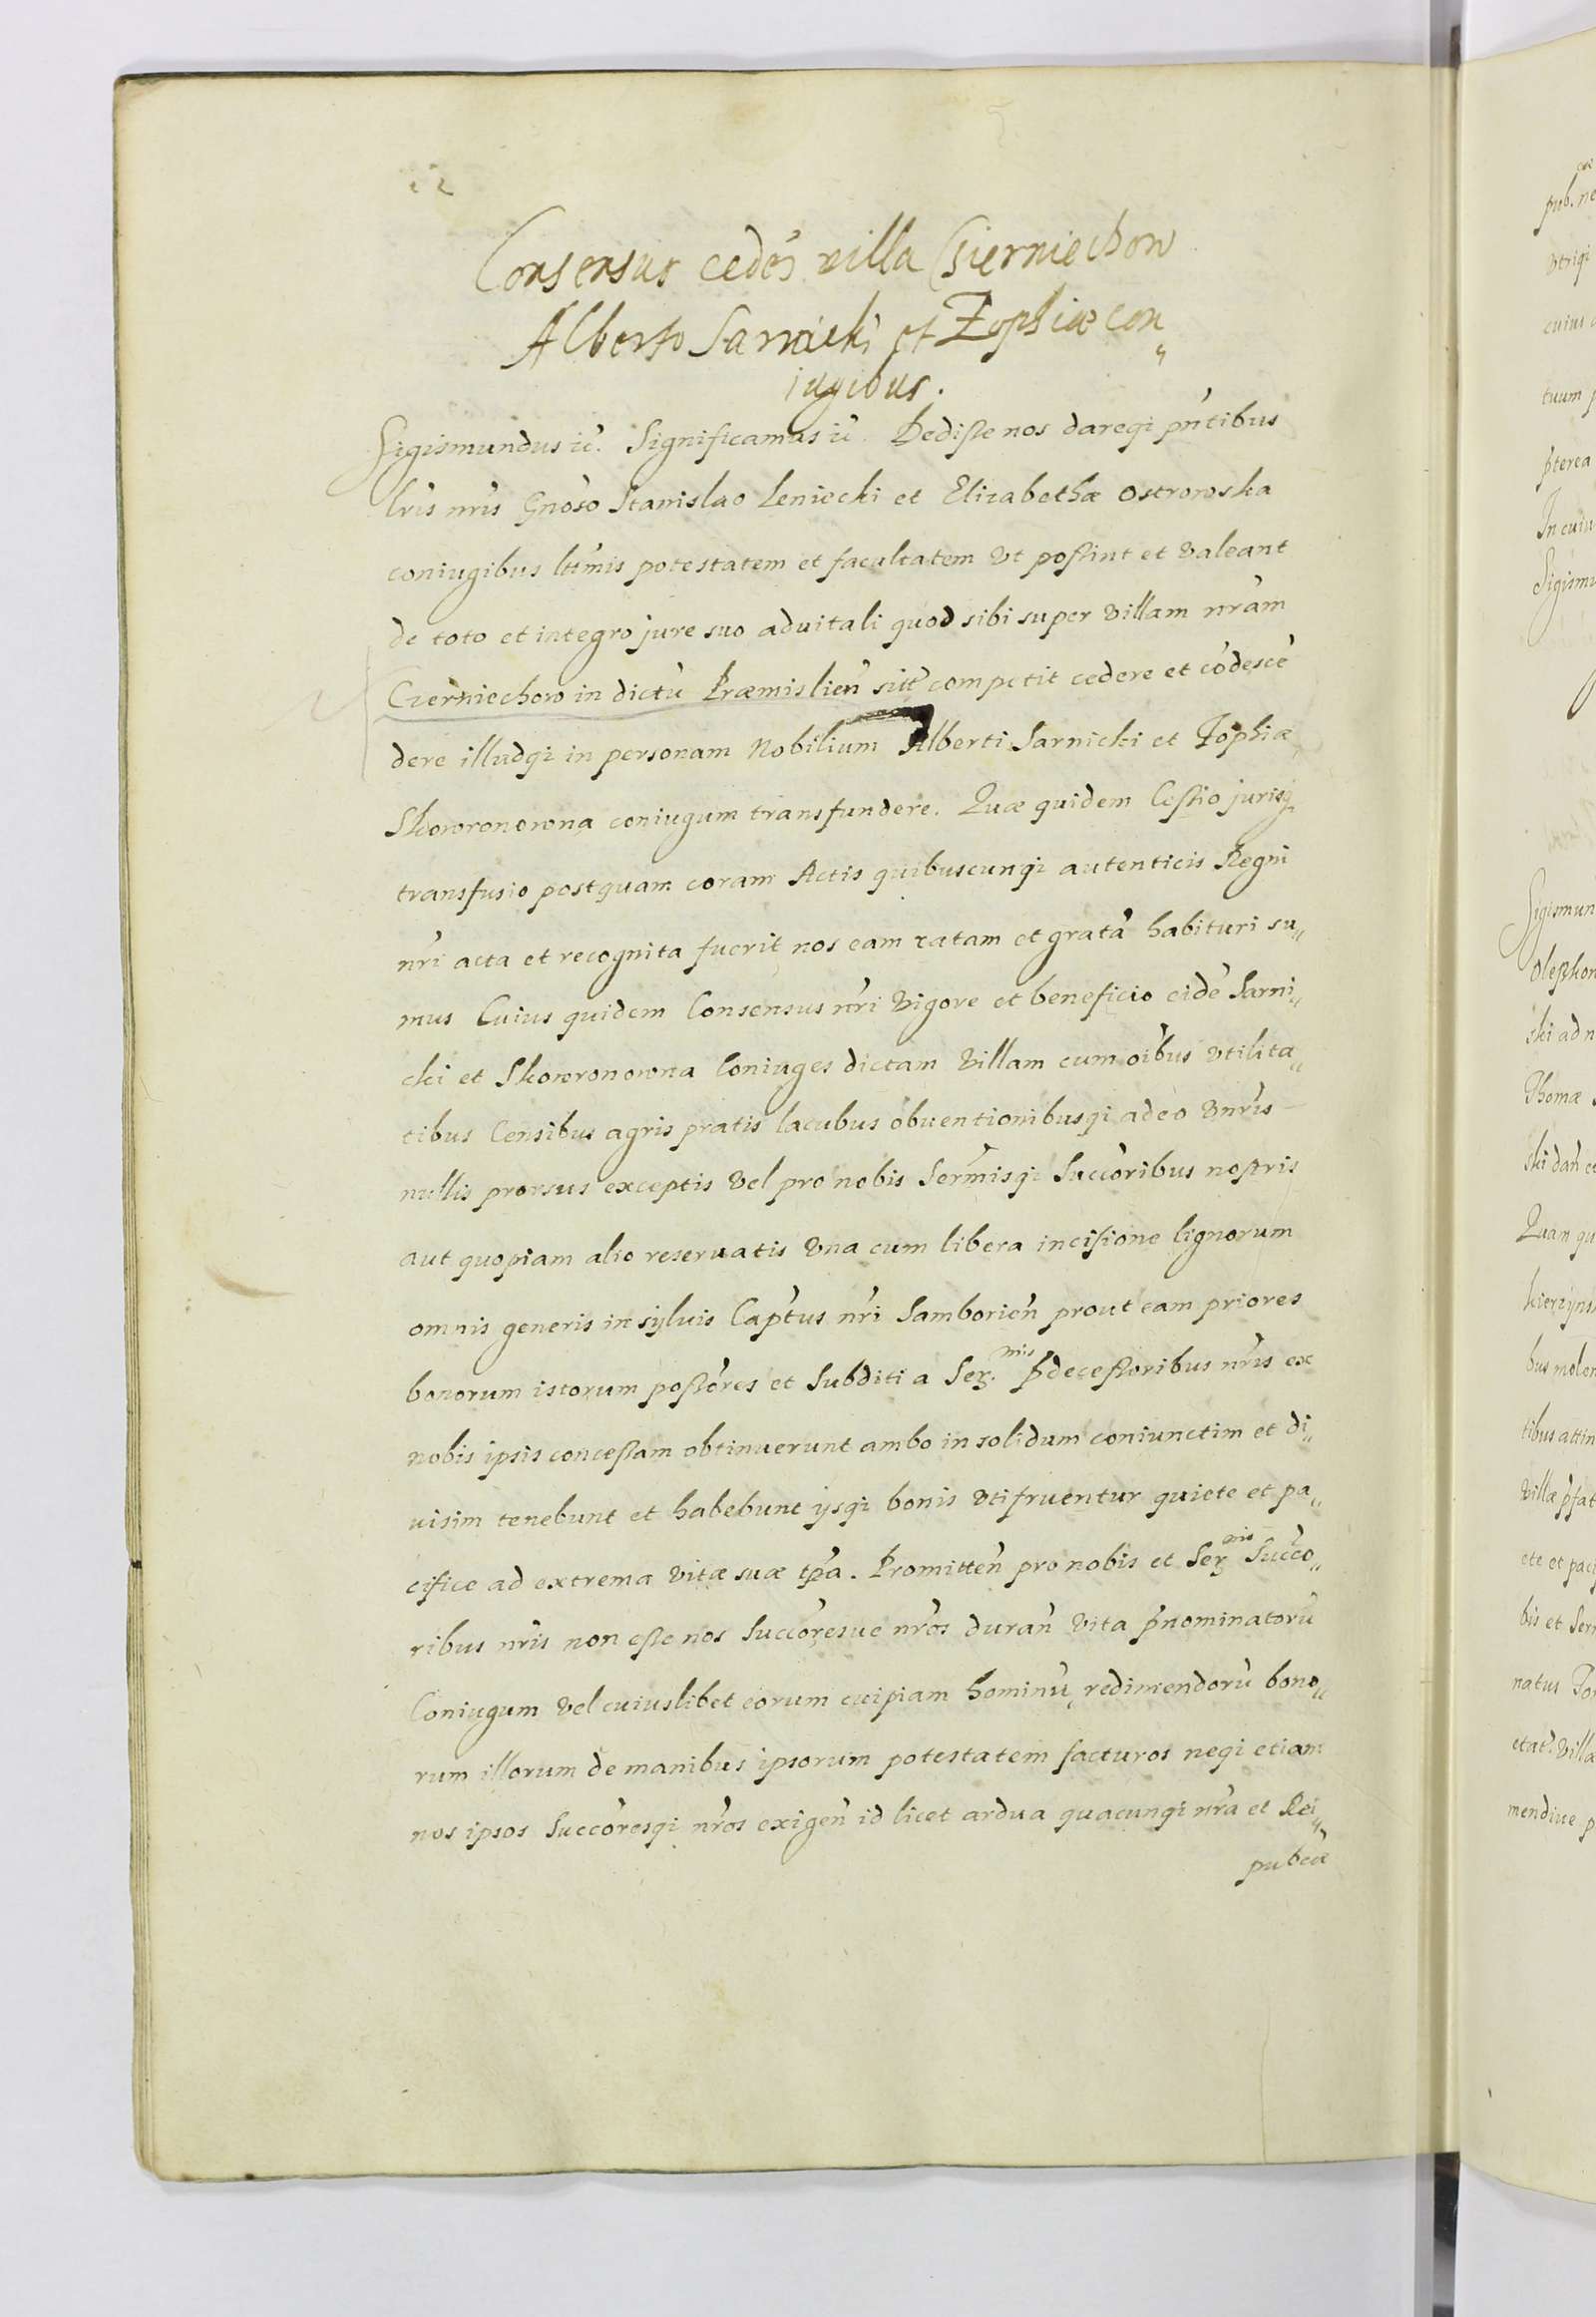 12
Consensus cedēn villa Czierniechow
Alberto Sarnicki et Zophiæ con„
iugibus.
Sigismundus ic̄. Significamus ic̄. Dedisse nos dareqꝫ pn̄tibus
lrīs nrīs Gnōso Stanislao Leniecki et Elizabethæ Ostrowska
coniugibus ltt̄mis potestatem et facultatem vt possint et valeant
de toto et integro jure suo aduitali quod sibi super villam nrām
Czerniechow in dictū Præmislien̄ sitt̄ competit cedere et cōdescē
dere illudqꝫ in personam Nobilium Alberti Sarnicki et Zophiæ
Skowronowna coniugum transfundere. Quæ quidem Cessio jurisqꝫ
transfusio postquam coram Actis quibuscunqꝫ autenticis Regni
nrī acta et recognita fuerit nos eam ratam et gratā habituri su„
mus Cuius quidem Consensus nrī vigore et beneficio eidē Sarni„
cki et Skowronowna Coniuges dictam villam cum oībus vtilita„
tibus Censibus agris pratis lacubus obuentionibusqꝫ adeo vnr̄is
nullis prorsus exceptis vel pro nobis Serm̄isqꝫ Succōribus nostris
aut quopiam alio reseruatis vna cum libera incisione lignorum
omnis generis in syluis Cap̄tus nrī Samborien̄ prout eam priores
bonorum istorum possōres et Subditi a Ser. mis p̄decessoribus nrīs ex
nobis ipsis concessam obtinuerunt ambo in solidum coniunctim et di„
uisim tenebunt et habebunt ysqꝫ bonis vtifruentur quiete et pa„
cifice ad extrema vitæ suæ tp̄a. Promitten̄ pro nobis et Ser mis Succo„
ribus nrīs non esse nos Succōresue nrōs duran̄ vita p̄nominatorū
Coniugum vel cuiuslibet eorum cuipiam hominū redimendorū bono„
rum illorum de manibus ipsorum potestatem facturos neqꝫ etiam
nos ipsos Succōresqꝫ nrōs exigen̄ id licet ardua quacunqꝫ nrā et Rei„
pubcæ